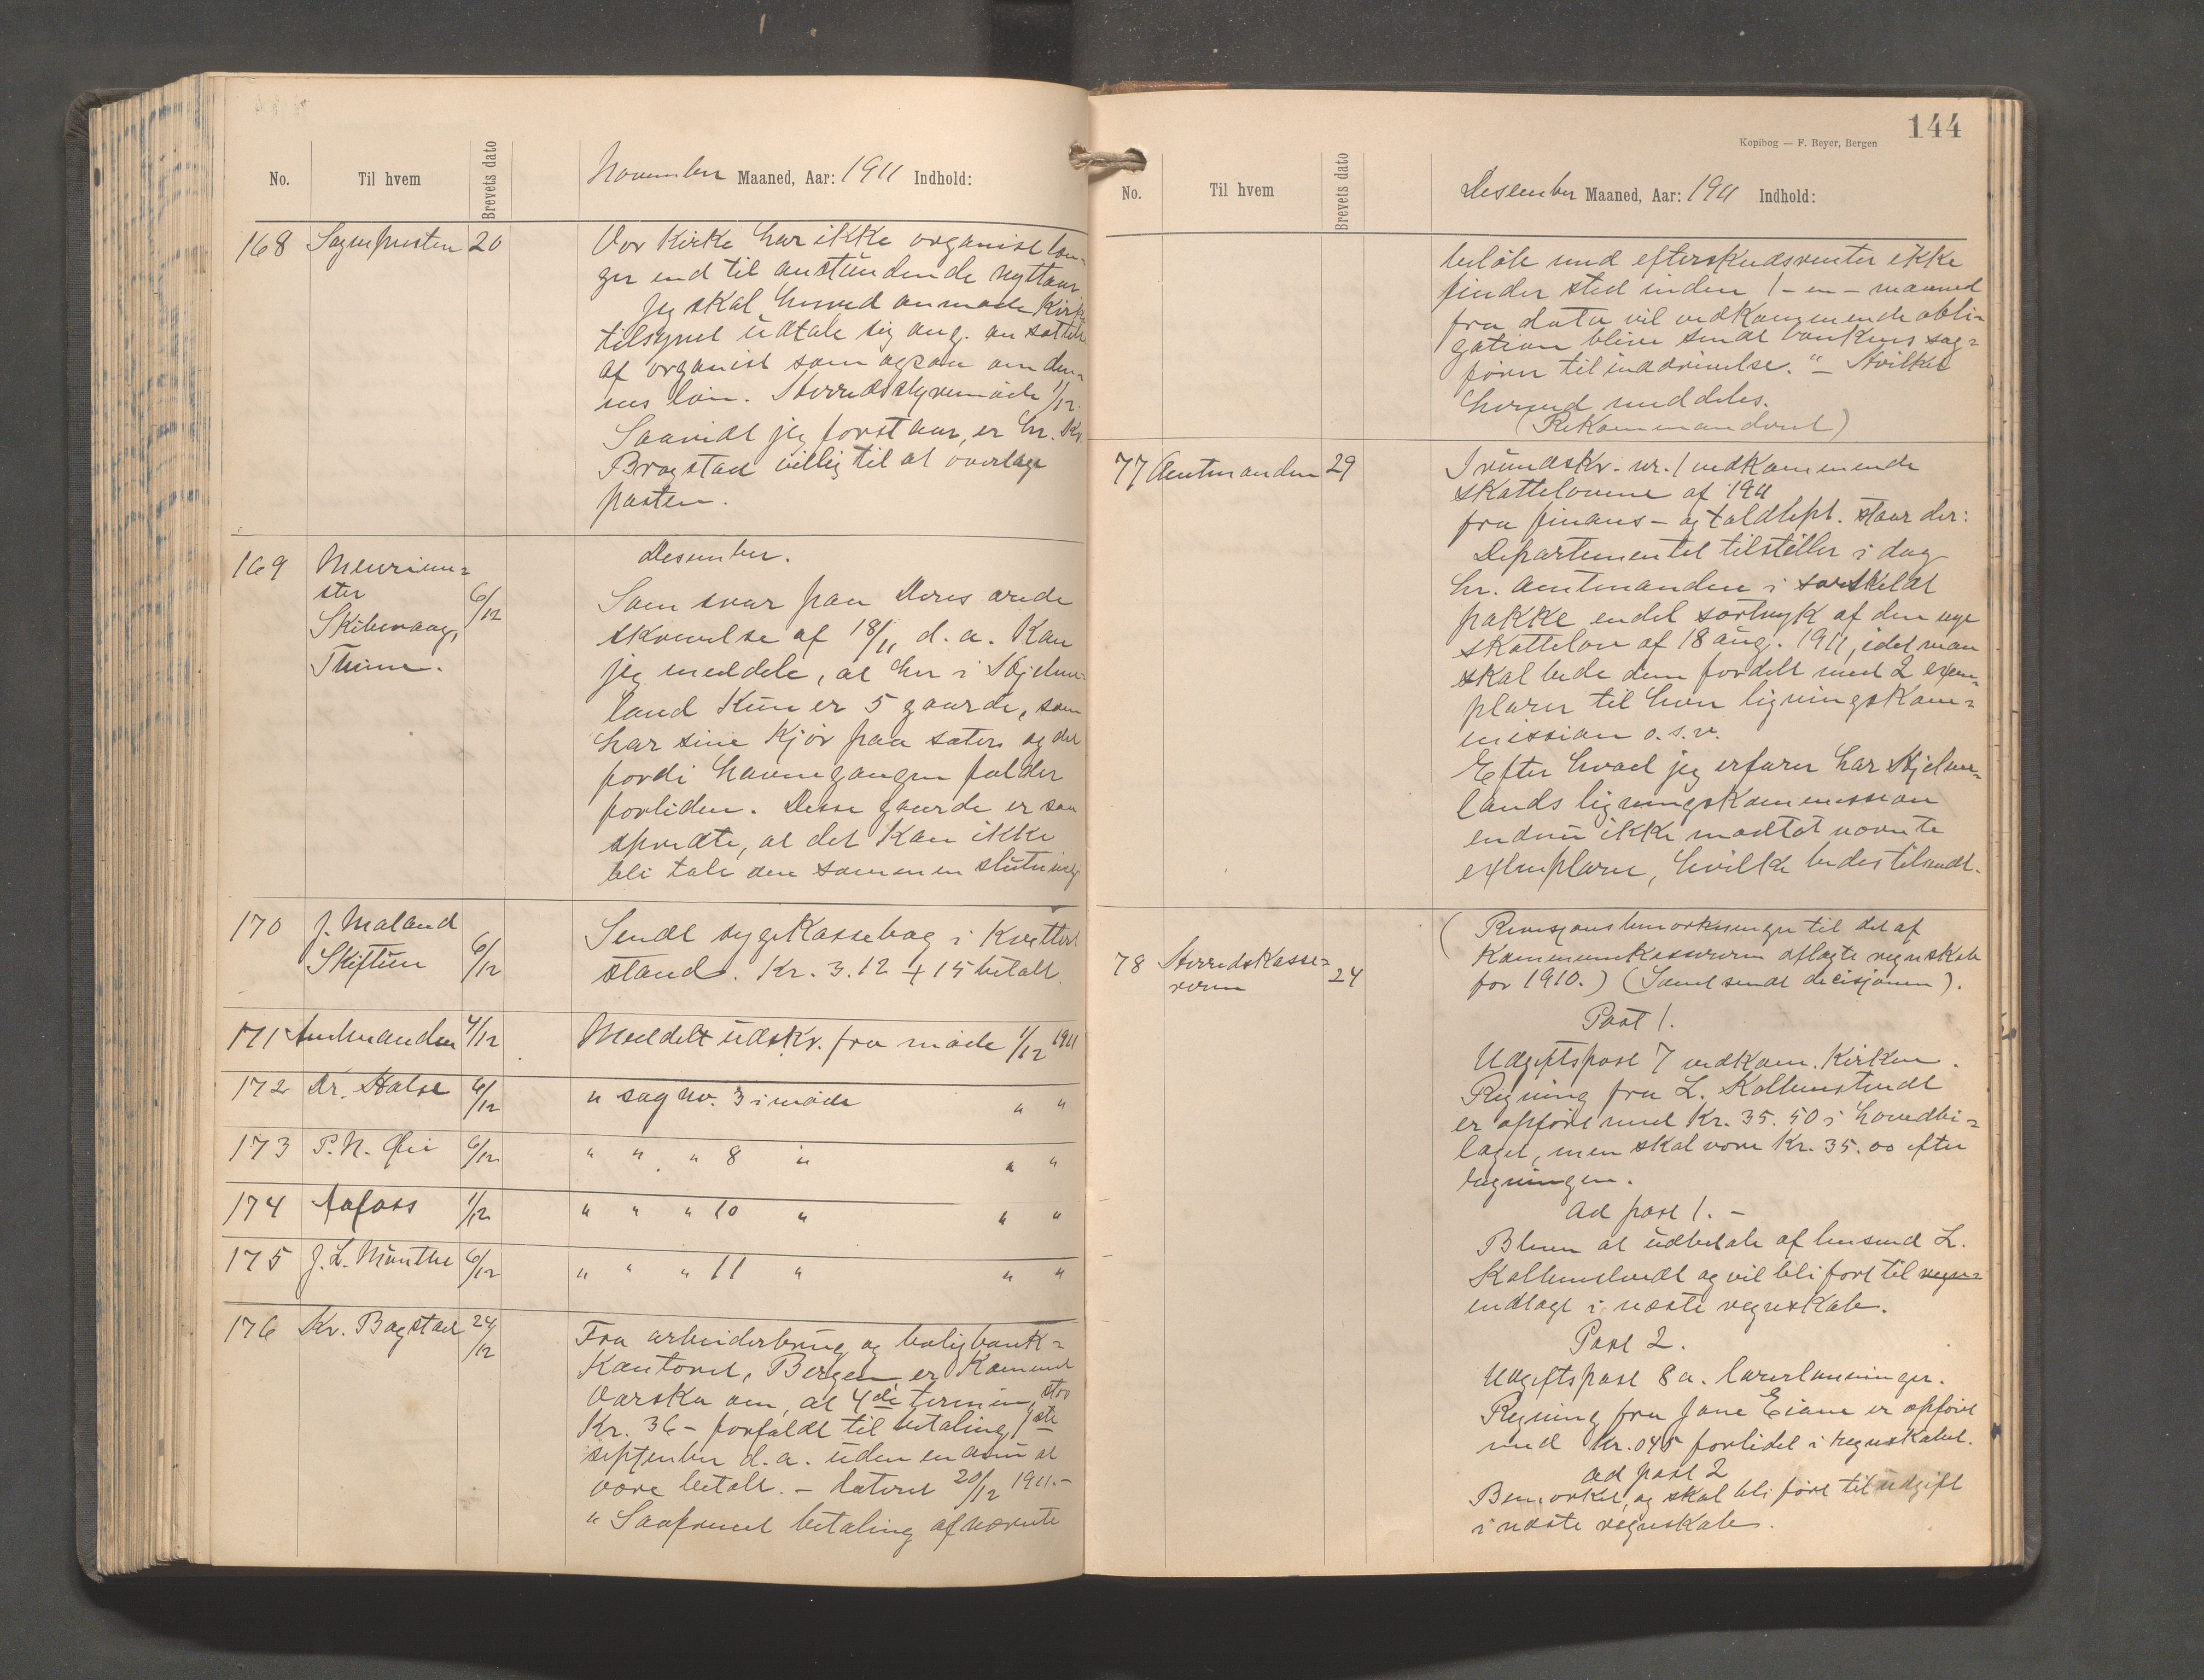 No.
Til hvem
Brevets dato
November Maaned, Aar: 1911 Indhold:
168 Sognepresten 20
Vor Kirke har ikke organist læn-
ger end til anstundende nyttaar
Jeg skal herved anmode Kirke
tilsynet udtale sig ang. ansættelse
af organist som ogsaa om den-
nes løn. Herredsstyremøde 1/12.
Saavidt jeg forstaar, er hr. Kr.
Bragstad villig til at overtage
posten.
Desember.
169 Meierim=
ster
Skibenaag,
Thime.
6/12
Som svar paa Deres ærede
skrivelse af 18/11 d. a. kan
jeg meddele, at her i Hjelme-
land kun er 5 gaarde, som
har sine kjør paa sæter og det
fordi havnegangen falder
forliden. Disse gaarde er saa
spredte, at det kan ikke
bli tale om sammenslutning
170 J. Maland
Skiftun
6/12
Sendt sygekassebog i kvittert
stand. Kr. 3.12 + 15 betalt.
171 Amtmanden 4/12
Meddelt udskr. fra møde 1/12 1911
172 Dr. Halse 6/12
" sag nr. 3 i møde " "
173 P. N. Øie 6/12
" " " 8 " " "
174 Aafoss 1/12
" " " 10 " " "
175 J. L. Münthe 6/12
" " " 11 " " "
176 Kr. Bagstad 24/12
Fra arbeiderbrug og boligbank-
kantoret, Bergen, er kommet
varsku om, at 4de termin, stor
Kr. 36 - forfaldt til betaling 1ste
september d. a. uden endnu at
være betalt. - Dateret 20/12 1911.-
" Saafremt betaling af nævnte
144
Kopibog — F. Beyer, Bergen
No.
Til hvem
Brevets dato
Desember Maaned, Aar: 1911 Indhold:
beløb med efterskudsrenter ikke
finder sted inden 1 - en - maaned
fra dato vil vedkommende obli-
gation blive sendt bankens sag=
fører til inddrivelse." - Hvilket
herved meddeles.
(Rekommanderet)
77 Amtmanden 29
I rundskr. nr. 1 vedkommende
skattelovene af 1911
fra finans- og toldept. staar der:
Departementet tilstiller i dag
hr. amtmanden i særskildt
pakke endel særtryk af den nye
skattelov af 18 aug. 1911, idet man
skal bede dem fordelt med 2 exem-
plarer til hver ligningskom=
mission o. s. v.
Efter hvad jeg erfarer har Hjelme=
lands ligningskommission
endnu ikke modtat nævnte
exemplarer, hvilke bedes tilsendt.
78 Herredskasse=
reren
24
(Revisjonsbemærkninger til det af
kommunekassereren aflagte regnskab
for 1910.) (Samt sendt decisjonen).
Post 1.
Udgiftspost 7 vedkom. kirken.
Regning fra L. Kolbenstvedt
er opført med Kr. 35.50 i hovedbi=
laget, men skal være Kr. 35.00 efter
regningen.
Ad post 1. -
Bleven at udbetale af lensmd L.
Kolbenstvedt og vil bli ført til regn=
indtægt i næste regnskab.
Post 2.
Udgiftspost 8 a. lærerlønninger.
Regning fra Jane Eiane er opført
med Kr. 045 forlidet i regnskabet.
Ad post 2
Bemærket, og skal bli ført til udgift
i næste regnskab.